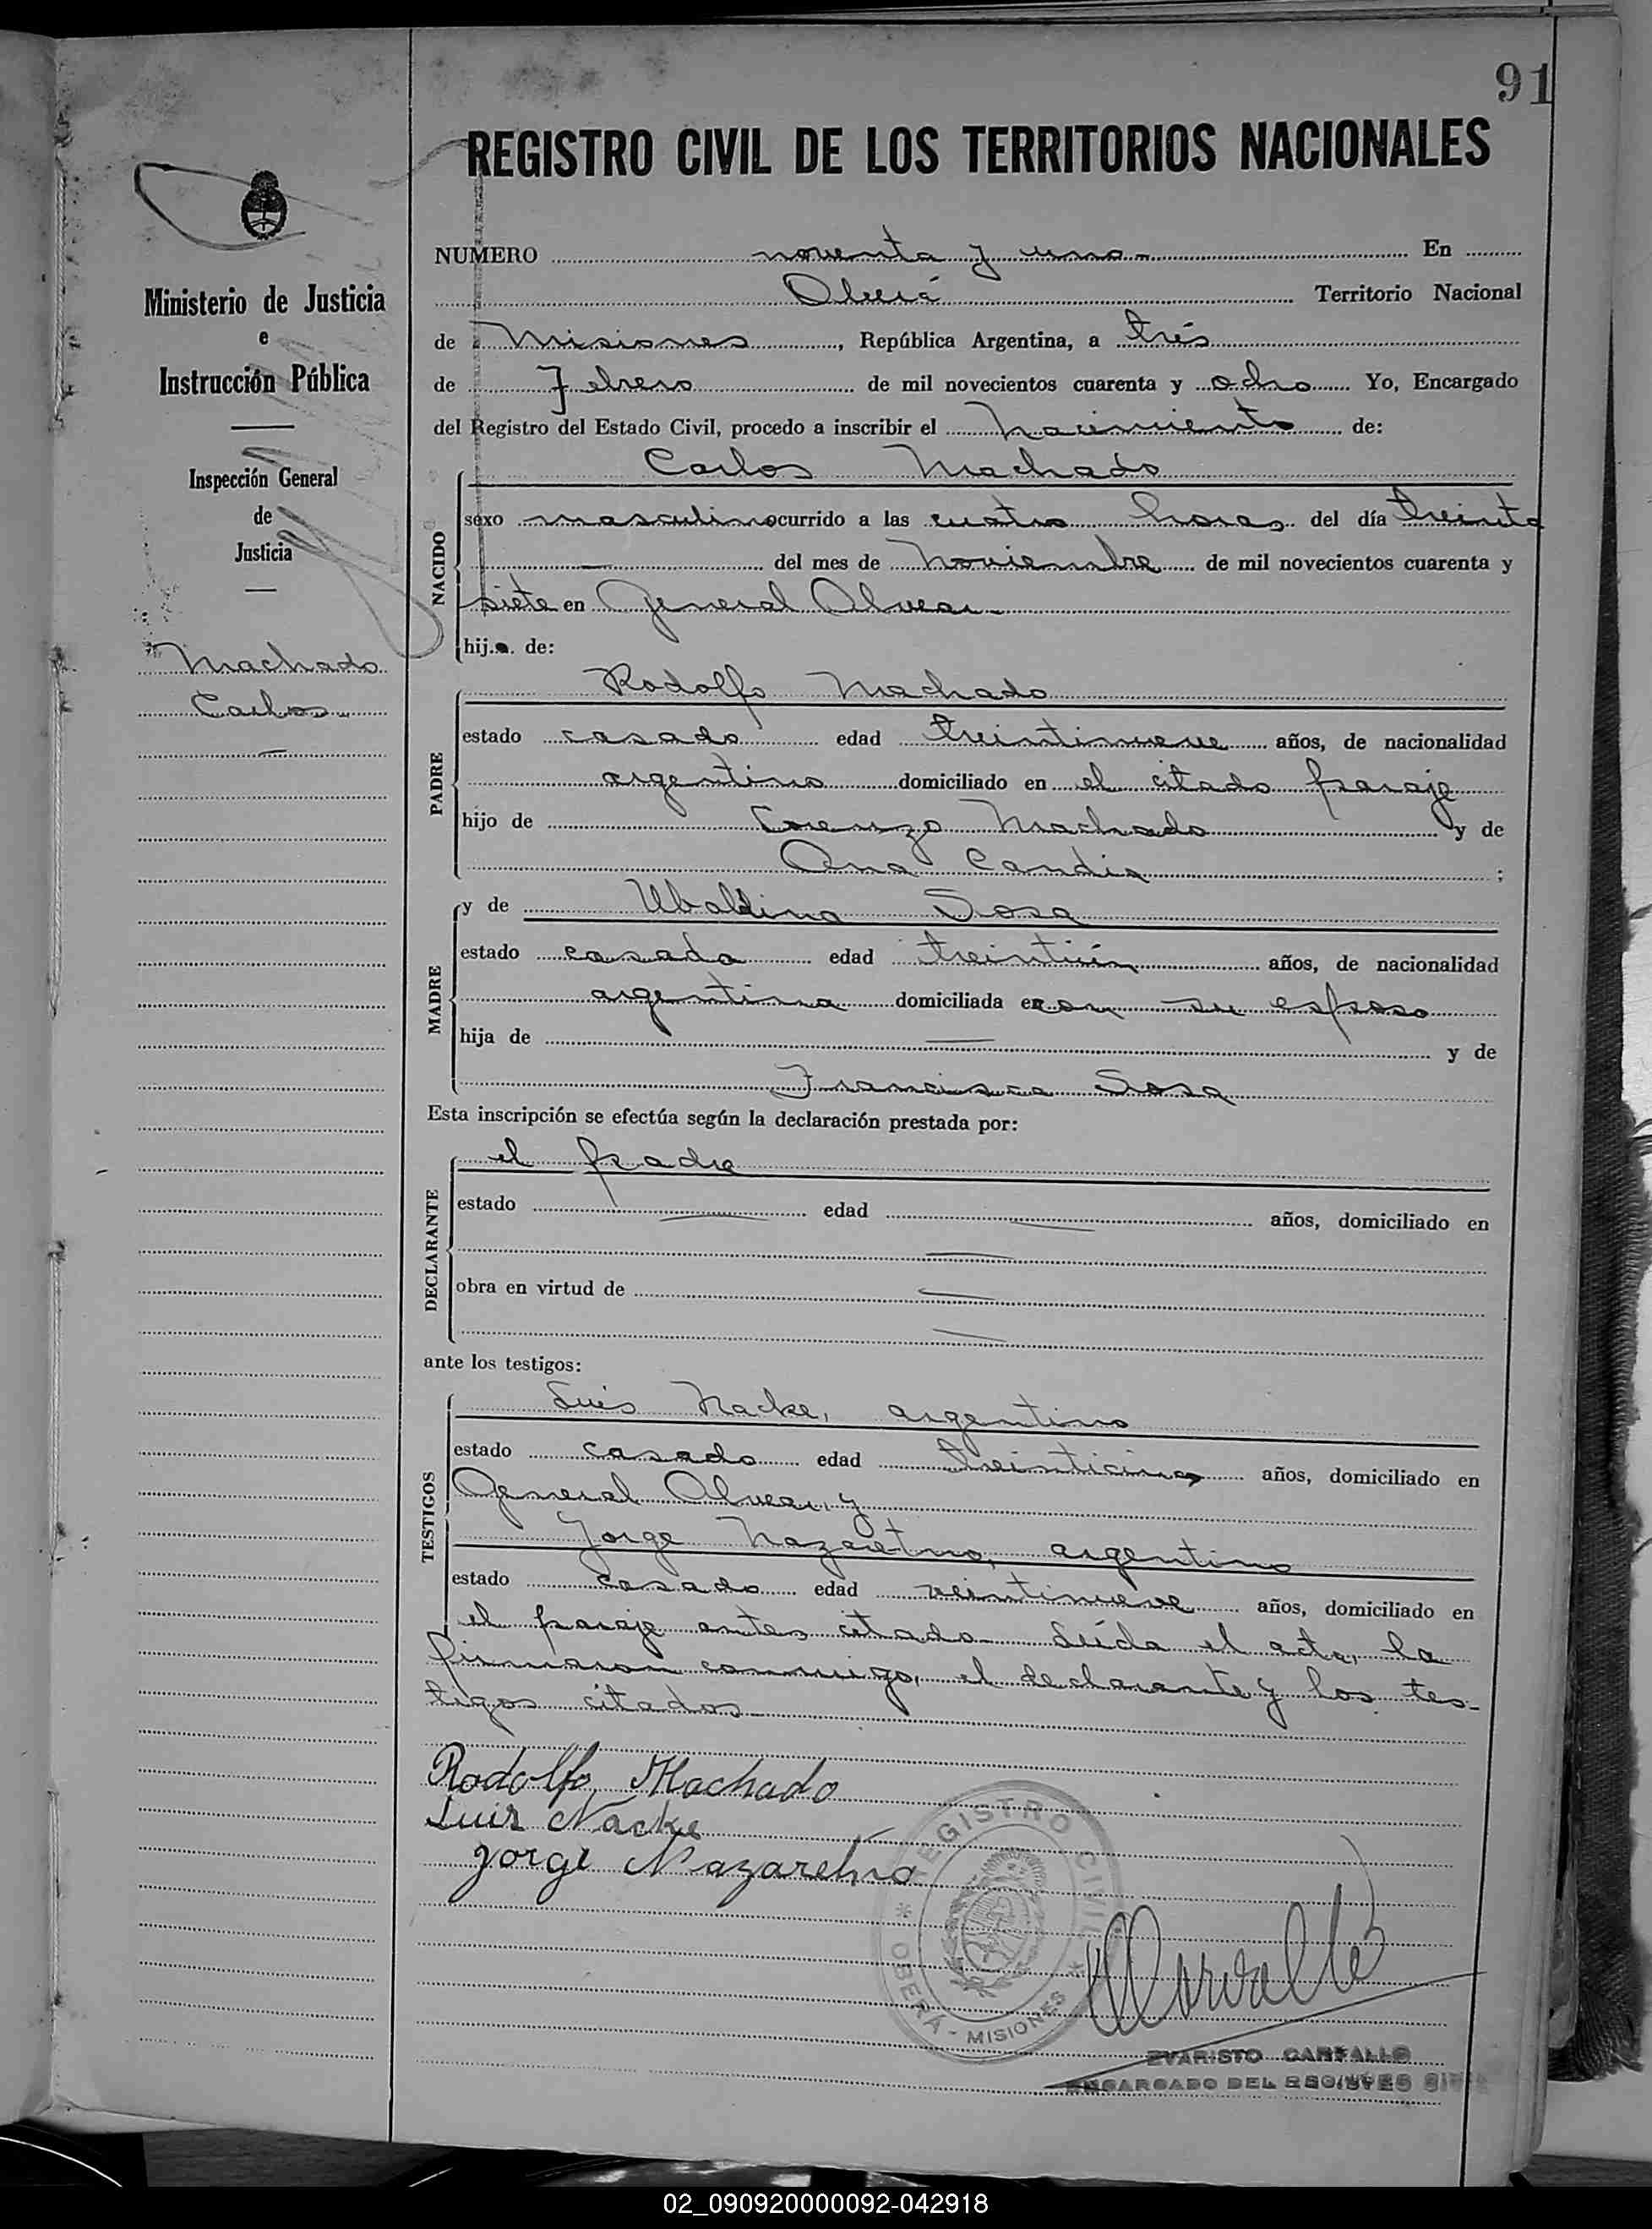 91
REGISTRO CIVIL DE LOS TERRITORIOS NACIONALES
Ministerio de Justicia
e
Instrucción Pública
Inspección General
de
Justicia
Machado
Carlos
NUMERO noventa y uno En
Oberá Territorio Nacional
de Misiones, República Argentina, a trés
de Febrero de mil novecientos cuarenta y ocho Yo, Encargado
del Registro del Estado Civil, procedo a inscribir el nacimiento de:
NACIDO
Carlos Machado
sexo masculino ocurrido a las cuatro horas del día treinta
del mes de Noviembre de mil novecientos cuarenta y
siete en General Alvear
hijo de:
PADRE
Rodolfo Machado
estado casado edad treintinueve años, de nacionalidad
argentino domiciliado en el citado paraje
hijo de Lorenzo Machado y de
Ana Candia;
MADRE
y de Ubaldina Sosa
estado casada edad treintiún años, de nacionalidad
argentina domiciliada con su esposo
hija de y de
Francisca Sosa
Esta inscripción se efectúa según la declaración prestada por:
DECLARANTE
el padre
estado edad años, domiciliado en
obra en virtud de
ante los testigos:
TESTIGOS
Luis Nacke, argentino
estado casado edad treinticinco años, domiciliado en
General Alvear, y
Jorge Nazaretno, argentino
estado casado edad veintinueve años, domiciliado en
el paraje antes citado. Leída el acta, la
firmaron conmigo, el declarante y los tes-
tigos citados
Rodolfo Machado
Luis Nacke
Jorge Nazaretno
REGISTRO CIVIL
OBERÁ - MISIONES
EVARISTO CARVALLO
ENCARGADO DEL REGISTRO CIVIL
02_090920000092-042918